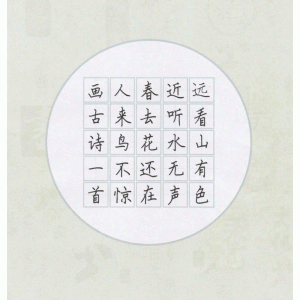 远看山有色
近听水无声
春去花还在
人来鸟不惊
画古诗一首